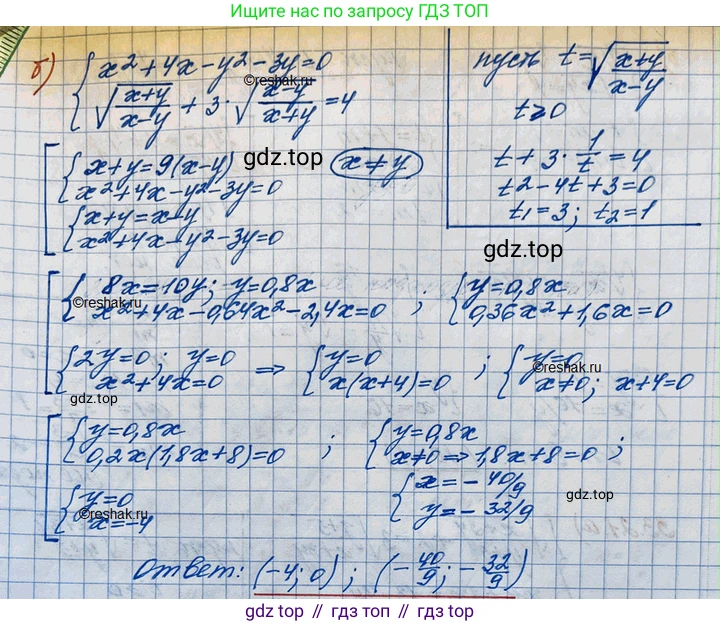 Ищите нас по запросу ГДЗ ТОП
б) { x² + 4x - y² - 3y = 0
√((x+y)/(x-y)) + 3·√((x-y)/(x+y)) = 4
©reshak.ru
пусть t = √((x+y)/(x-y))
t ≥ 0
t + 3·1/t = 4
t² - 4t + 3 = 0
t₁ = 3; t₂ = 1
[ { x+y = 9(x-y)
x² + 4x - y² - 3y = 0
gdz.top
x ≠ y
{ x+y = x-y
x² + 4x - y² - 3y = 0
gdz.top
[ { 8x = 10y; y = 0,8x
x² + 4x - 0,64x² - 2,4x = 0 ;
©reshak.ru
{ y = 0,8x
0,36x² + 1,6x = 0
{ 2y = 0; y = 0
x² + 4x = 0
⇒ { y = 0
x(x+4) = 0 ;
{ y = 0
x ≠ 0; x+4 = 0
gdz.top
©reshak.ru
[ { y = 0,8x
0,2x(1,8x+8) = 0 ;
{ y = 0,8x
x ≠ 0 ⇒ 1,8x+8 = 0 ;
{ y = 0
x = -4
©reshak.ru
{ x = -40/9
y = -32/9
gdz.top
Ответ: (-4; 0) ; (-40/9; -32/9)
gdz.top // гдз топ // гдз.top